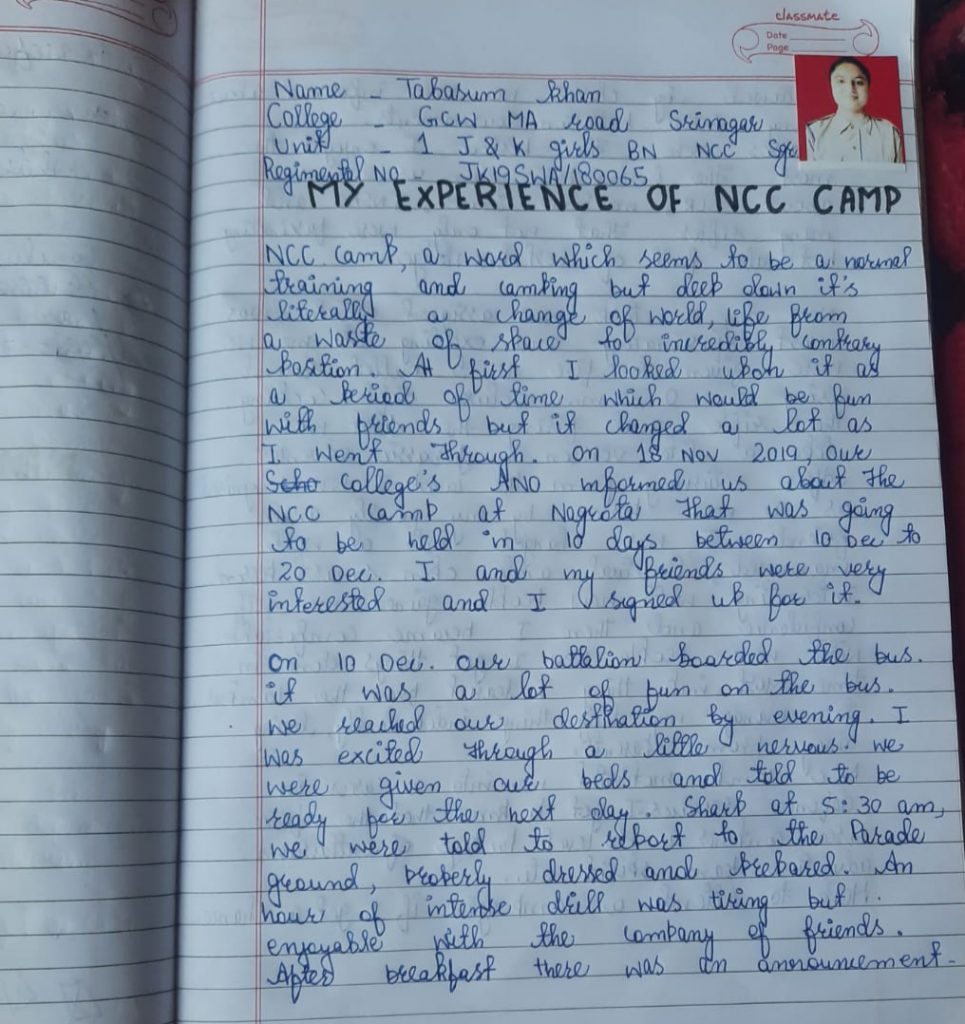 classmate
Date
Page
Name - Tabasum Khan
College - GCW MA road Srinagar
Unit - 1 J & K girls BN NCC Sgr
Regimental No - JK19SWA/180065
MY EXPERIENCE OF NCC CAMP
NCC camp, a word which seems to be a normal
training and camping but deep down it's
literally a change of world, life from
a waste of space to incredibly contrary
position. At first I looked upon it as
a period of time which would be fun
with friends but it changed a lot as
I went through. On 18 Nov 2019, our
Scho College's ANO informed us about the
NCC camp at Nagrota that was going
to be held in 10 days between 10 Dec to
20 Dec. I and my friends were very
interested and I signed up for it.
On 10 Dec. our battalion boarded the bus.
it was a lot of fun on the bus.
we reached our destination by evening. I
was excited through a little nervous. we
were given our beds and told to be
ready for the next day. Sharp at 5:30 am,
we were told to report to the Parade
ground, properly dressed and prepared. An
hour of intense drill was tiring but
enjoyable with the company of friends.
After breakfast there was an announcement-